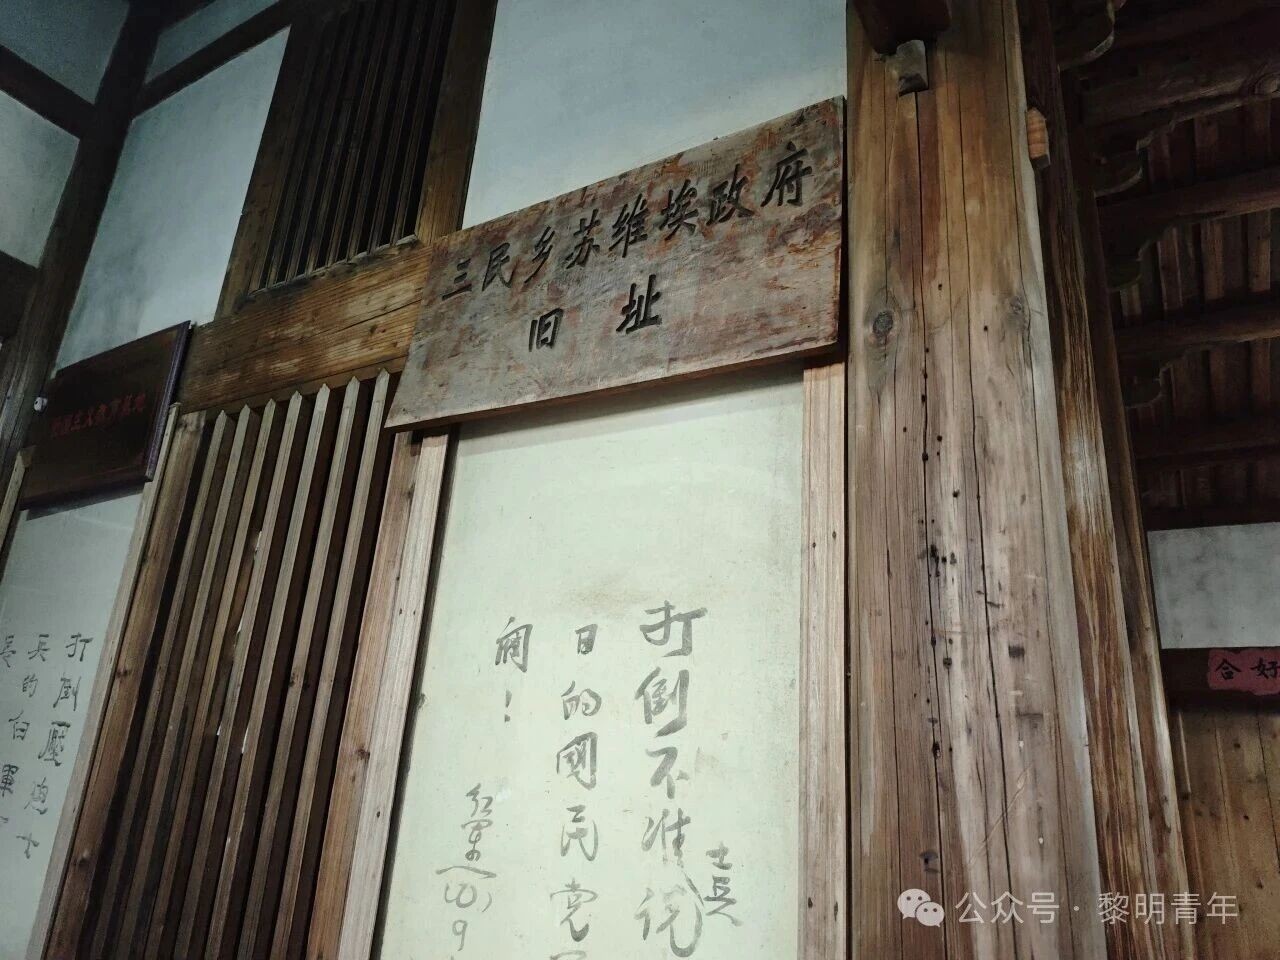 三民乡苏维埃政府
旧址
打倒不准说
士兵
日的國民党
阀！
红军
打倒壓迫士
兵的白軍
好合
公众号·黎明青年